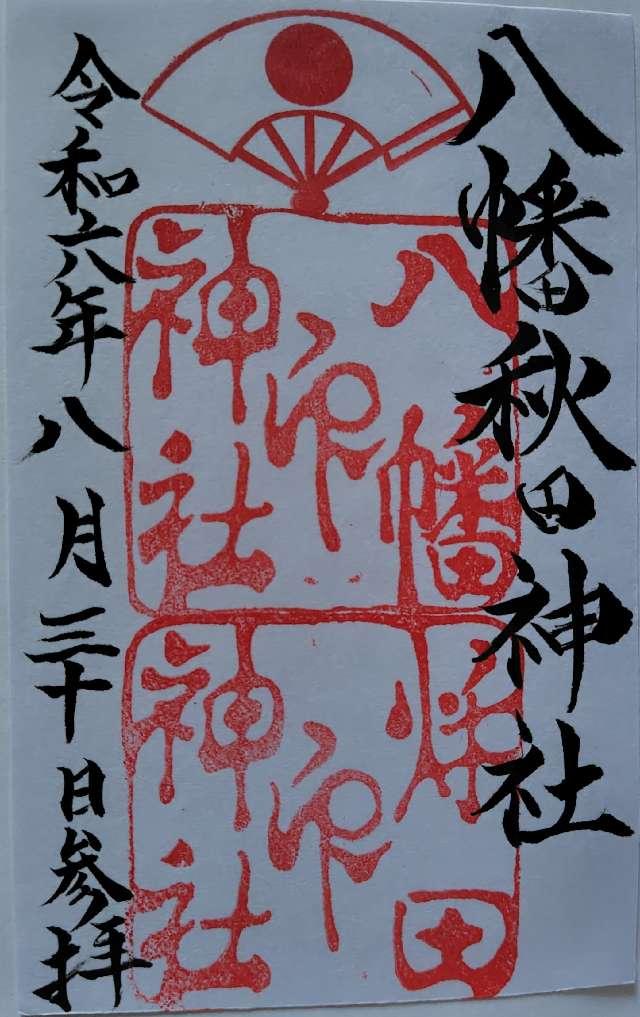 八幡秋田神社
八幡
印
神社
秋田
印
神社
令和六年八月三十日参拝